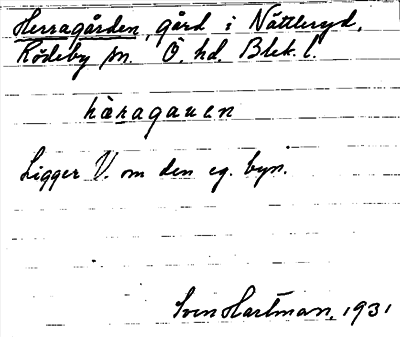 Herragården, gård i Nättleryd,
Rödeby sn. Ö. hd. Blek. l.
hæragauen
Ligger V. om den eg. byn.
Sven Hartman, 1931